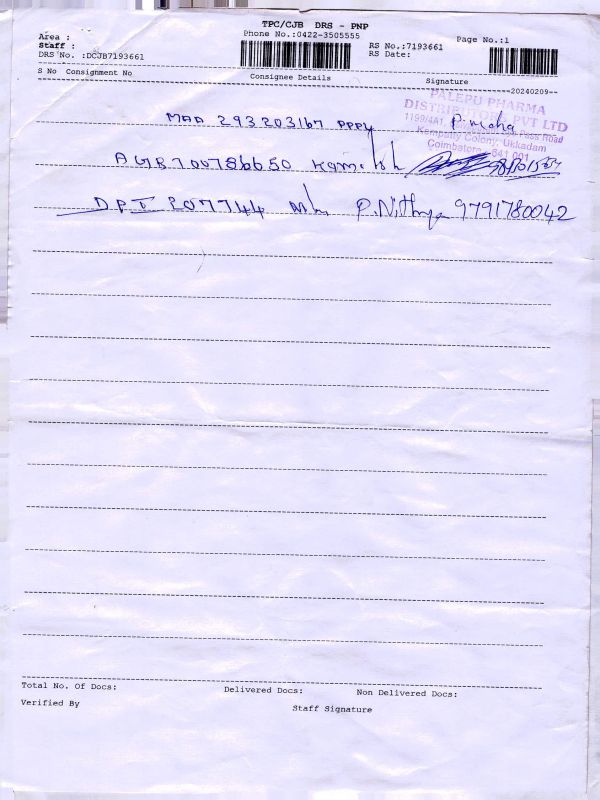 TPC/CJB DRS - PNP
Area :
Phone No.:0422-3505555
Page No.:1
Staff :
RS No.:7193661
DRS No. :DCJB7193661
RS Date:
S No Consignment No
Consignee Details
Signature
20240209
PALEPU PHARMA
DISTRIBUTORS PVT LTD
1199/4A1, Pass Road
Kempatty Colony, Ukkadam
Coimbatore - 641 001
MAA 293203167 PPPL P. meha
AGB700786650 Kamalsh
DPI 207744 P.Nithya 9791780042
Total No. Of Docs:
Delivered Docs:
Non Delivered Docs:
Verified By
Staff Signature